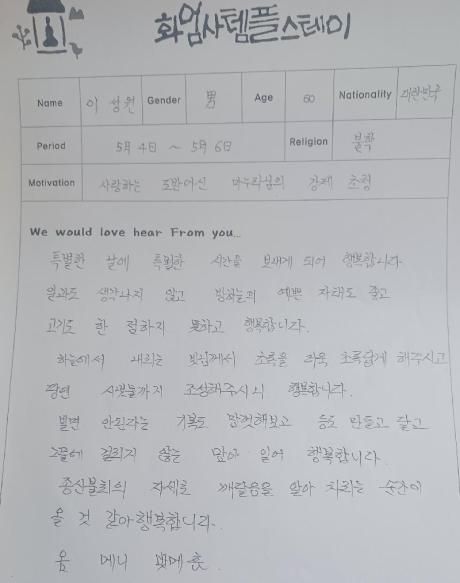 화엄사템플스테이
Name 이성원 Gender 男 Age 60 Nationality 대한민국
Period 5月 4日 ~ 5月 6日 Religion 불학
Motivation 사랑하는 마누라님의 강제 초청
We would love hear From you...
특별한 날에 특별한 시간을 보내게 되어 행복합니다
생각나지 않고 밤하늘의 예쁜 자태도 좋고
고기도 한 점하지 못하고 행복합니다.
하늘에서 내리는 빗님께서 초록을 더욱 초록답게 해주시고
조성해주시니 행복합니다.
빌면 안된다는 기복도 맘껏해보고 등도 만들고 달고
걸리지 않는 맘이 일어 행복합니다.
자세로 깨달음을 알아 차리는 순간이
올 것 같아 행복합니다.
옴 메니 반메 훔